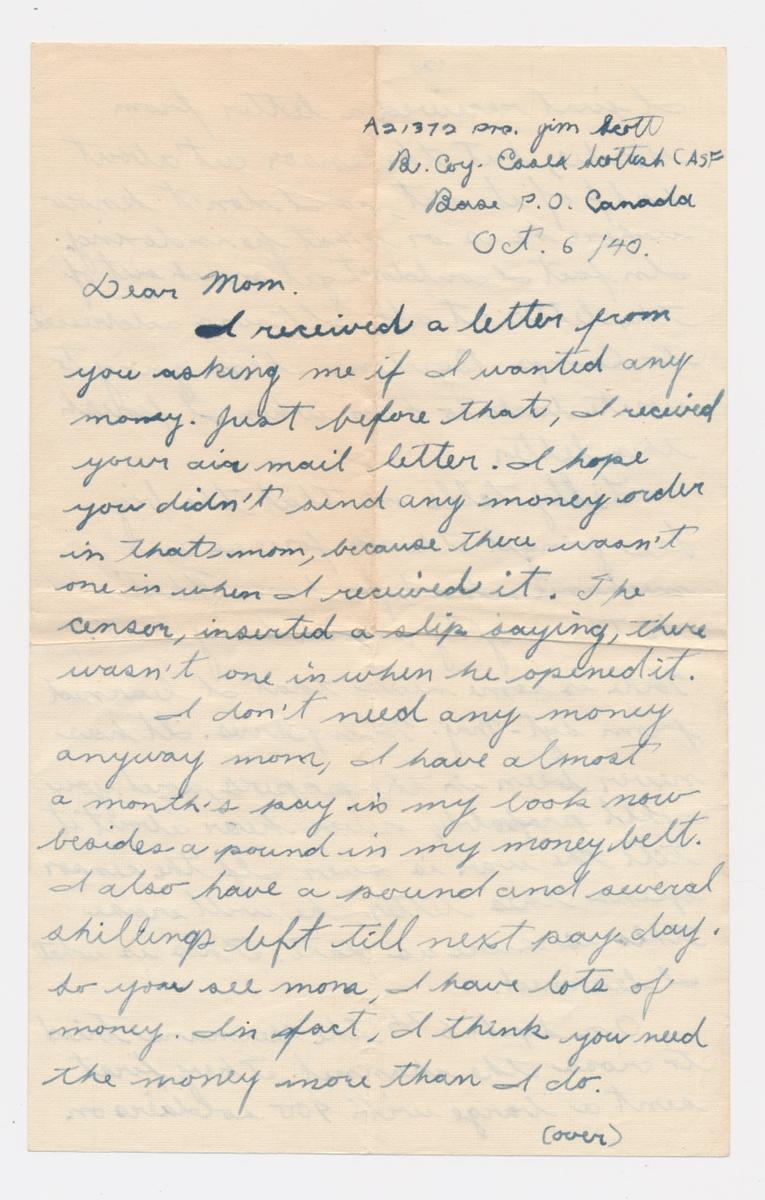 A21372 Pte. Jim Scott
B. Coy. Essex Scottish (ASF
Base P.O. Canada
Oct. 6/40.
Dear Mom.
I received a letter from
you asking me if I wanted any
money. Just before that, I received
your air mail letter. I hope
you didn't send any money order
in that mom, because there wasn't
one in when I received it. The
censor, inserted a slip saying, there
wasn't one in when he opened it.
I don't need any money
anyway mom, I have almost
a month's pay in my book now
besides a pound in my money belt.
I also have a pound and several
shillings left till next pay day.
So you see mom, I have lots of
money. In fact, I think you need
the money more than I do.
(over)